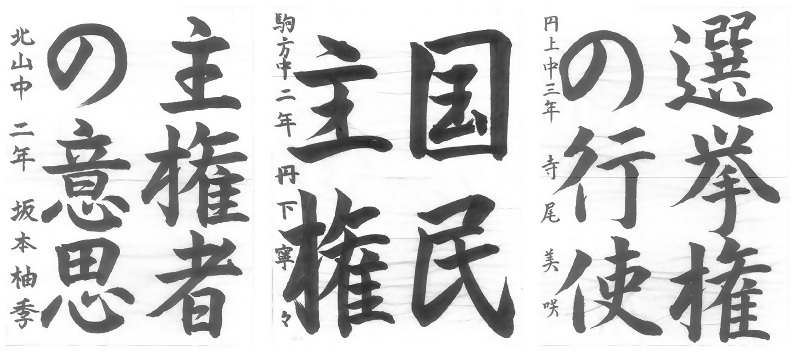 選挙権
の行使
円上中三年 寺尾美咲
国民
主権
駒方中二年 丹下寧々
主権者
の意思
北山中 二年 坂本柚季